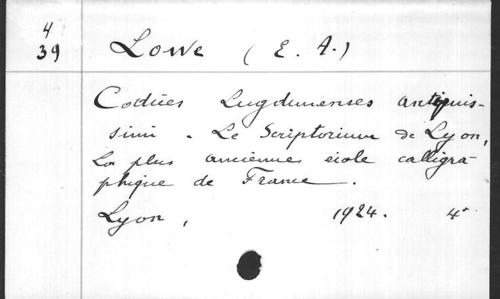 4
39 Lowe (E. A.)
Codices Lugdunenses antiquis-
simi. Le Scriptorium de Lyon,
la plus ancienne école calligra-
phique de France.
Lyon, 1924. 4°